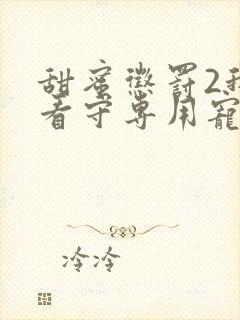 甜蜜懲罰2我
看守專用寵
冷冷